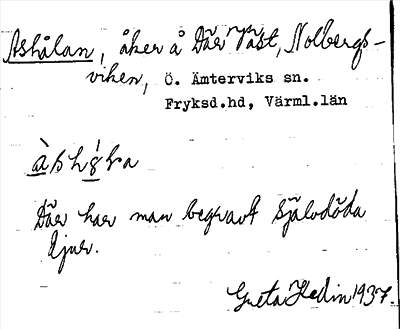 Ashålan, åker å Där Väst, Nolbergs-
viken, Ö. Ämterviks sn.
Fryksd.hd, Värml.län
Där har man begravt självdöda
djur.
Greta Hedin 1937.